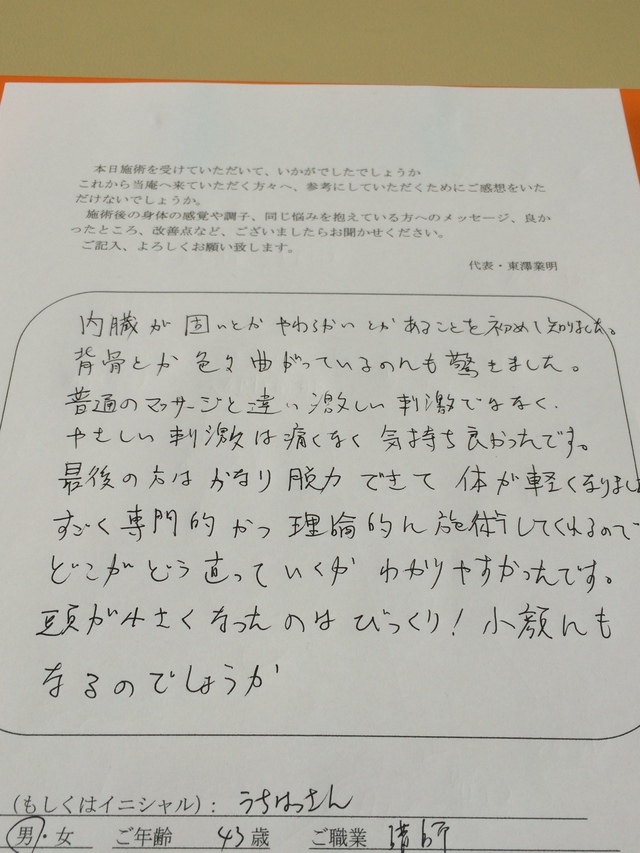 本日施術を受けていただいて、いかがでしたでしょうか
これから当庵へ来ていただく方々へ、参考にしていただくためにご感想をいた
だけないでしょうか。
施術後の身体の感覚や調子、同じ悩みを抱えている方へのメッセージ、良か
ったところ、改善点など、ございましたらお聞かせください。
ご記入、よろしくお願い致します。
代表・東澤業明
内臓が固いとかやわらかいとかあることを初めて知りました。
背骨とか色々曲がっているのにも驚きました。
普通のマッサージと違い激しい刺激ではなく、
やさしい刺激は痛くなく気持ち良かったです。
最後の方はかなり脱力できて体が軽くなりまし
すごく専門的かつ理論的に施術してくれるので
どこがどう直っていくかわかりやすかったです。
頭が小さくなったのはびっくり!小顔にも
なるのでしょうか
(もしくはイニシャル):うちはっさん
男・女 ご年齢 43歳 ご職業 講師